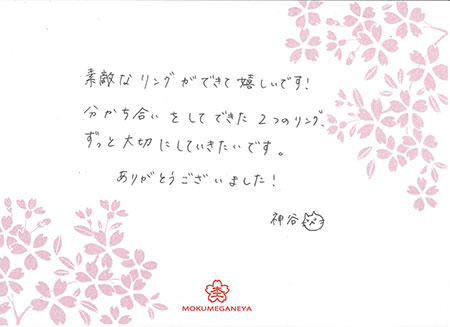 素敵なリングができて嬉しいです!
分かち合いをしてできた2つのリング、
ずっと大切にしていきたいです。
ありがとうございました!
神谷
MOKUMEGANEYA